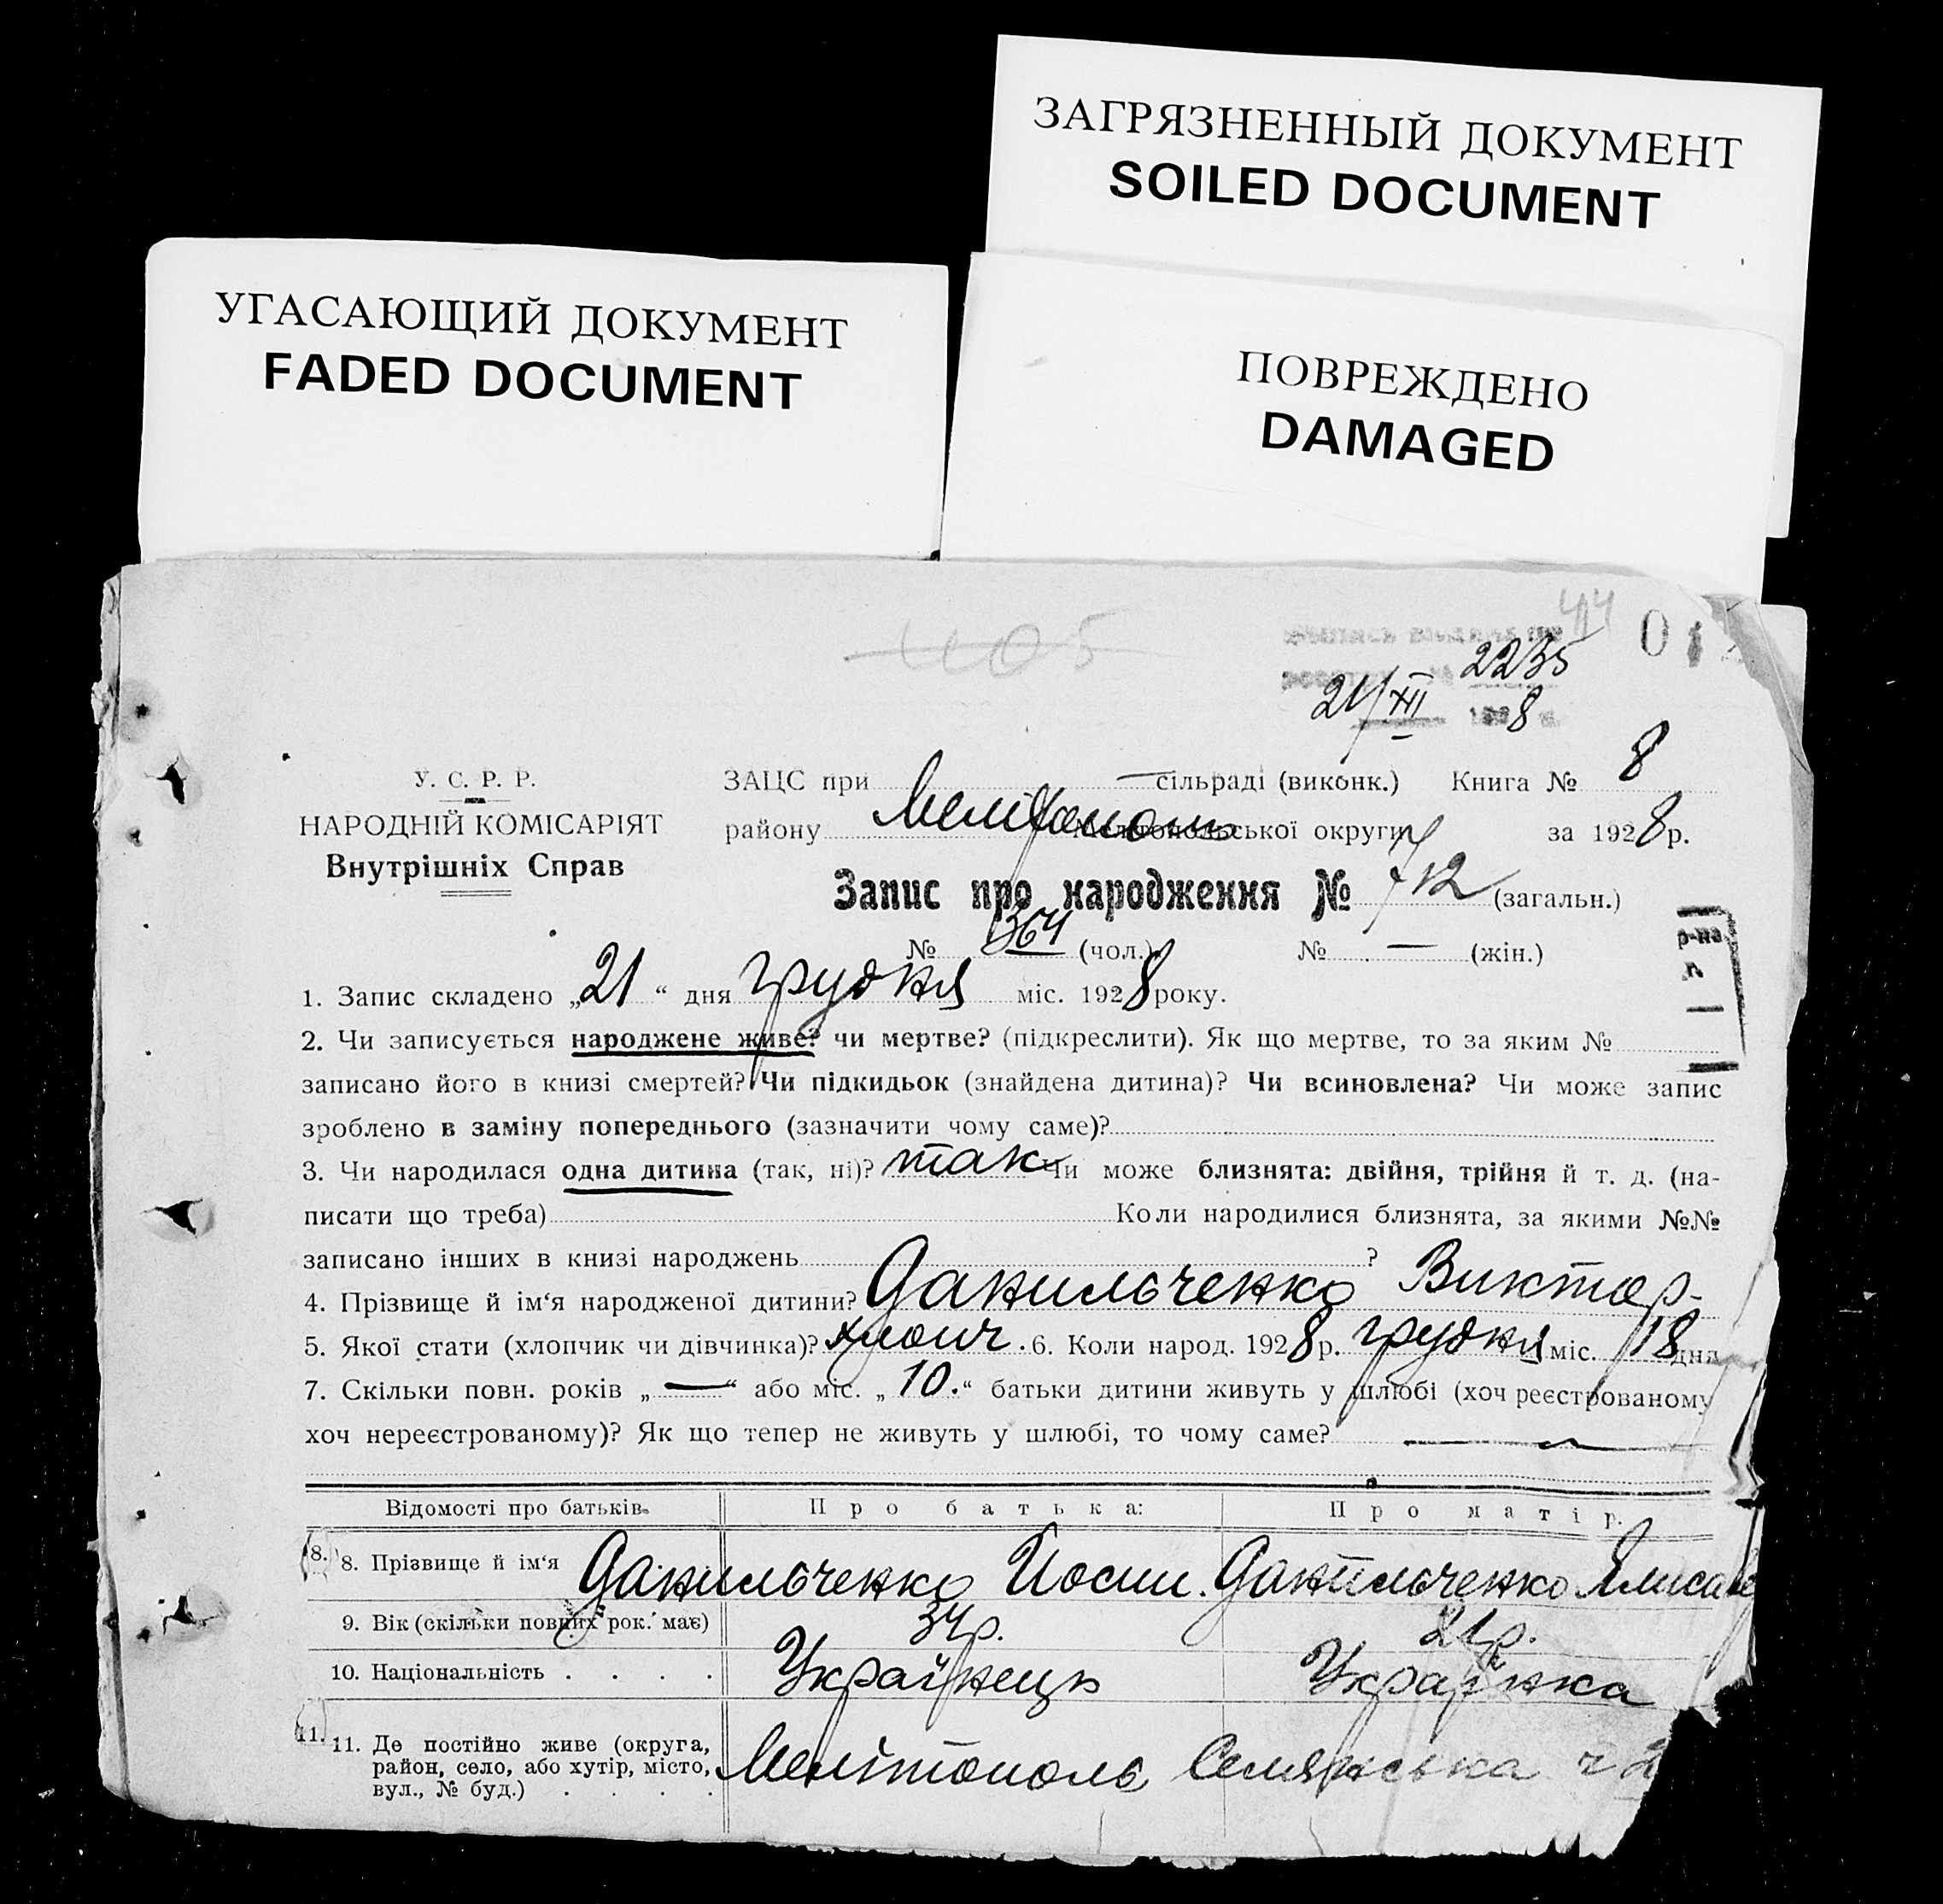 ЗАГРЯЗНЕННЫЙ ДОКУМЕНТ
SOILED DOCUMENT
УГАСАЮЩИЙ ДОКУМЕНТ
FADED DOCUMENT
ПОВРЕЖДЕНО
DAMAGED
44
405
2235
21/XII 1928
У. С. Р. Р.
НАРОДНІЙ КОМІСАРІЯТ
Внутрішніх Справ
ЗАЦС при — сільраді (виконк.) Книга № 8
району Мелітополь Мелітопольської округи за 1928 р.
Запис про народження № 712 (загальн.)
№ 364 (чол.) № — (жін.)
р-на
1. Запис складено „21“ дня грудня міс. 1928 року.
2. Чи записується народжене живе? чи мертве? (підкреслити). Як що мертве, то за яким №
записано його в книзі смертей? Чи підкидьок (знайдена дитина)? Чи всиновлена? Чи може запис
зроблено в заміну попереднього (зазначити чому саме)?
3. Чи народилася одна дитина (так, ні)? так Чи може близнята: двійня, трійня й т. д. (на-
писати що треба) Коли народилися близнята, за якими №№
записано інших в книзі народжень ?
4. Прізвище й ім‘я народженої дитини? Данильченко Виктор
5. Якої стати (хлопчик чи дівчинка)? хлопч. 6. Коли народ. 1928 р. грудня міс. 18 дня
7. Скільки повн. років „—“ або міс. „10.“ батьки дитини живуть у шлюбі (хоч реєстрованому
хоч нереєстрованому)? Як що тепер не живуть у шлюбі, то чому саме? —
Відомості про батьків. Про батька: Про матір.
8. 8. Прізвище й ім‘я Данильченко Йосип. Данильченко
9. Вік (скільки повних рок. має) 34 р. 21 р.
10. Національність . . . . Українець Українка
11. 11. Де постійно живе (округа,
район, село, або хутір, місто,
вул., № буд.) . . . . Мелітополь